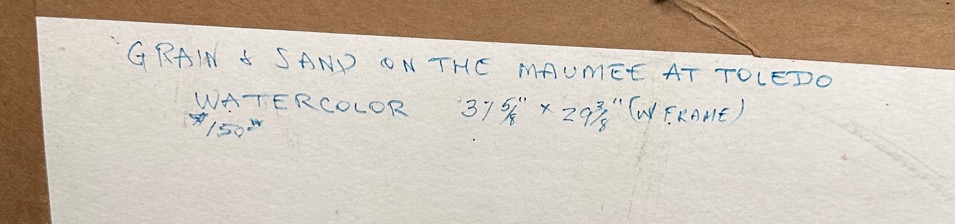 GRAIN & SAND ON THE MAUMEE AT TOLEDO
WATERCOLOR 37 5/8" x 29 3/8" (W FRAME)
$150